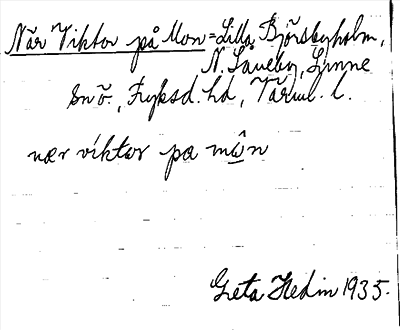 När Viktor på Mon = Lilla Björsbyholm,
N. Såneby, Lunne
snö., Fryksd. hd, Värml. l.
nær viktor pa môn
Greta Hedin 1935.